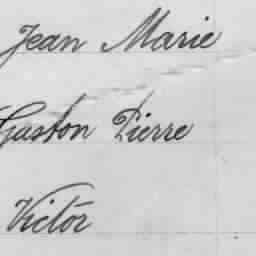 Jean Marie
Gaston Pierre
Victor